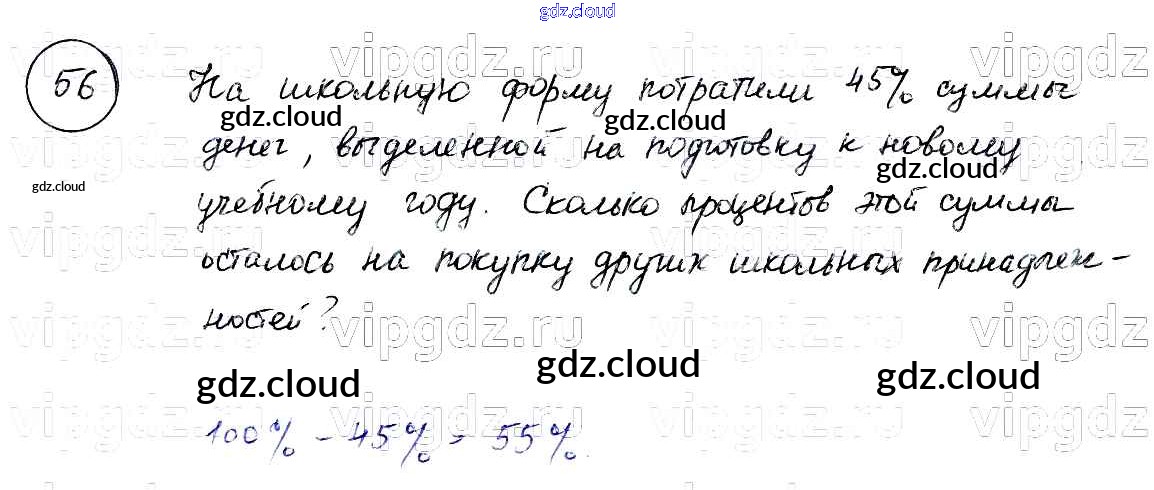 gdz.cloud
vipgdz.ru vipgdz.ru vipgdz.ru vipgdz
56 На школьную форму потратили 45% суммы
gdz.cloud gdz.cloud
денег, выделенной на подготовку к новому
gdz.cloud gdz.cloud
учебному году. Сколько процентов этой суммы
vipgdz.ru vipgdz.ru vipgdz.ru vipgdz
осталось на покупку других школьных принадлеж-
ностей?
vipgdz.ru vipgdz.ru vipgdz.ru vipgdz
gdz.cloud gdz.cloud gdz.cloud
vipgdz.ru vipgdz.ru vipgdz.ru vipgdz
100% - 45% = 55%.